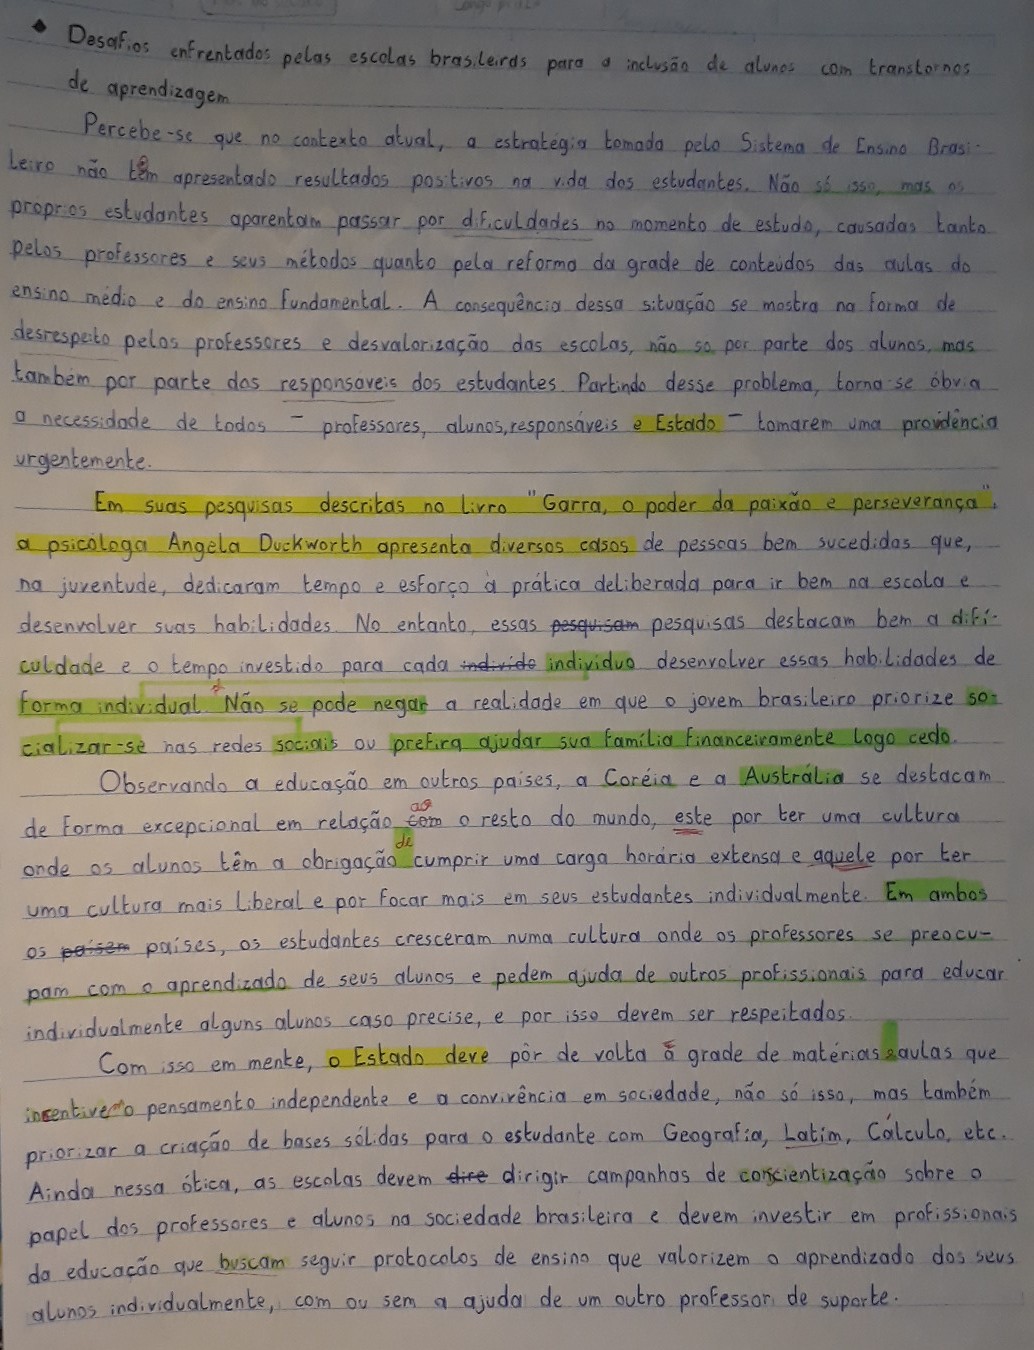 • Desafios enfrentados pelas escolas brasileiras para a inclusão de alunos com transtornos
de aprendizagem
Percebe-se que no contexto atual, a estratégia tomada pelo Sistema de Ensino Brasi-
leiro não tem apresentado resultados positivos na vida dos estudantes. Não só isso, mas os
proprios estudantes aparentam passar por dificuldades no momento de estudo, causadas tanto
pelos professores e seus métodos quanto pela reforma da grade de conteúdos das aulas do
ensino médio e do ensino fundamental. A consequência dessa situação se mostra na forma de
desrespeito pelos professores e desvalorização das escolas, não so por parte dos alunos, mas
também por parte dos responsaveis dos estudantes. Partindo desse problema, torna-se óbvia
a necessidade de todos – professores, alunos, responsáveis e Estado – tomarem uma providência
urgentemente.
Em suas pesquisas descritas no livro "Garra, o poder da paixão e perseverança",
a psicóloga Angela Duckworth apresenta diversos casos de pessoas bem sucedidas que,
na juventude, dedicaram tempo e esforço à prática deliberada para ir bem na escola e
desenvolver suas habilidades. No entanto, essas pesquisam pesquisas destacam bem a difi-
culdade e o tempo investido para cada individo individuo desenvolver essas habilidades de
forma individual. Não se pode negar a realidade em que o jovem brasileiro priorize so-
cializar-se nas redes sociais ou prefira ajudar sua família financeiramente logo cedo.
Observando a educação em outros países, a Coréia e a Austrália se destacam
ao
de forma excepcional em relação com o resto do mundo, este por ter uma cultura
de
onde os alunos têm a obrigação cumprir uma carga horária extensa e aquele por ter
uma cultura mais liberal e por focar mais em seus estudantes individualmente. Em ambos
os paísem países, os estudantes cresceram numa cultura onde os professores se preocu-
pam com o aprendizado de seus alunos e pedem ajuda de outros profissionais para educar
individualmente alguns alunos caso precise, e por isso devem ser respeitados.
Com isso em mente, o Estado deve pôr de volta à grade de matérias aulas que
incentive o pensamento independente e a convivência em sociedade, não só isso, mas também
priorizar a criação de bases sólidas para o estudante com Geografia, Latim, Cálculo, etc.
Ainda nessa ótica, as escolas devem dire dirigir campanhas de conscientização sobre o
papel dos professores e alunos na sociedade brasileira e devem investir em profissionais
da educação que buscam seguir protocolos de ensino que valorizem o aprendizado dos seus
alunos individualmente, com ou sem a ajuda de um outro professor de suporte.